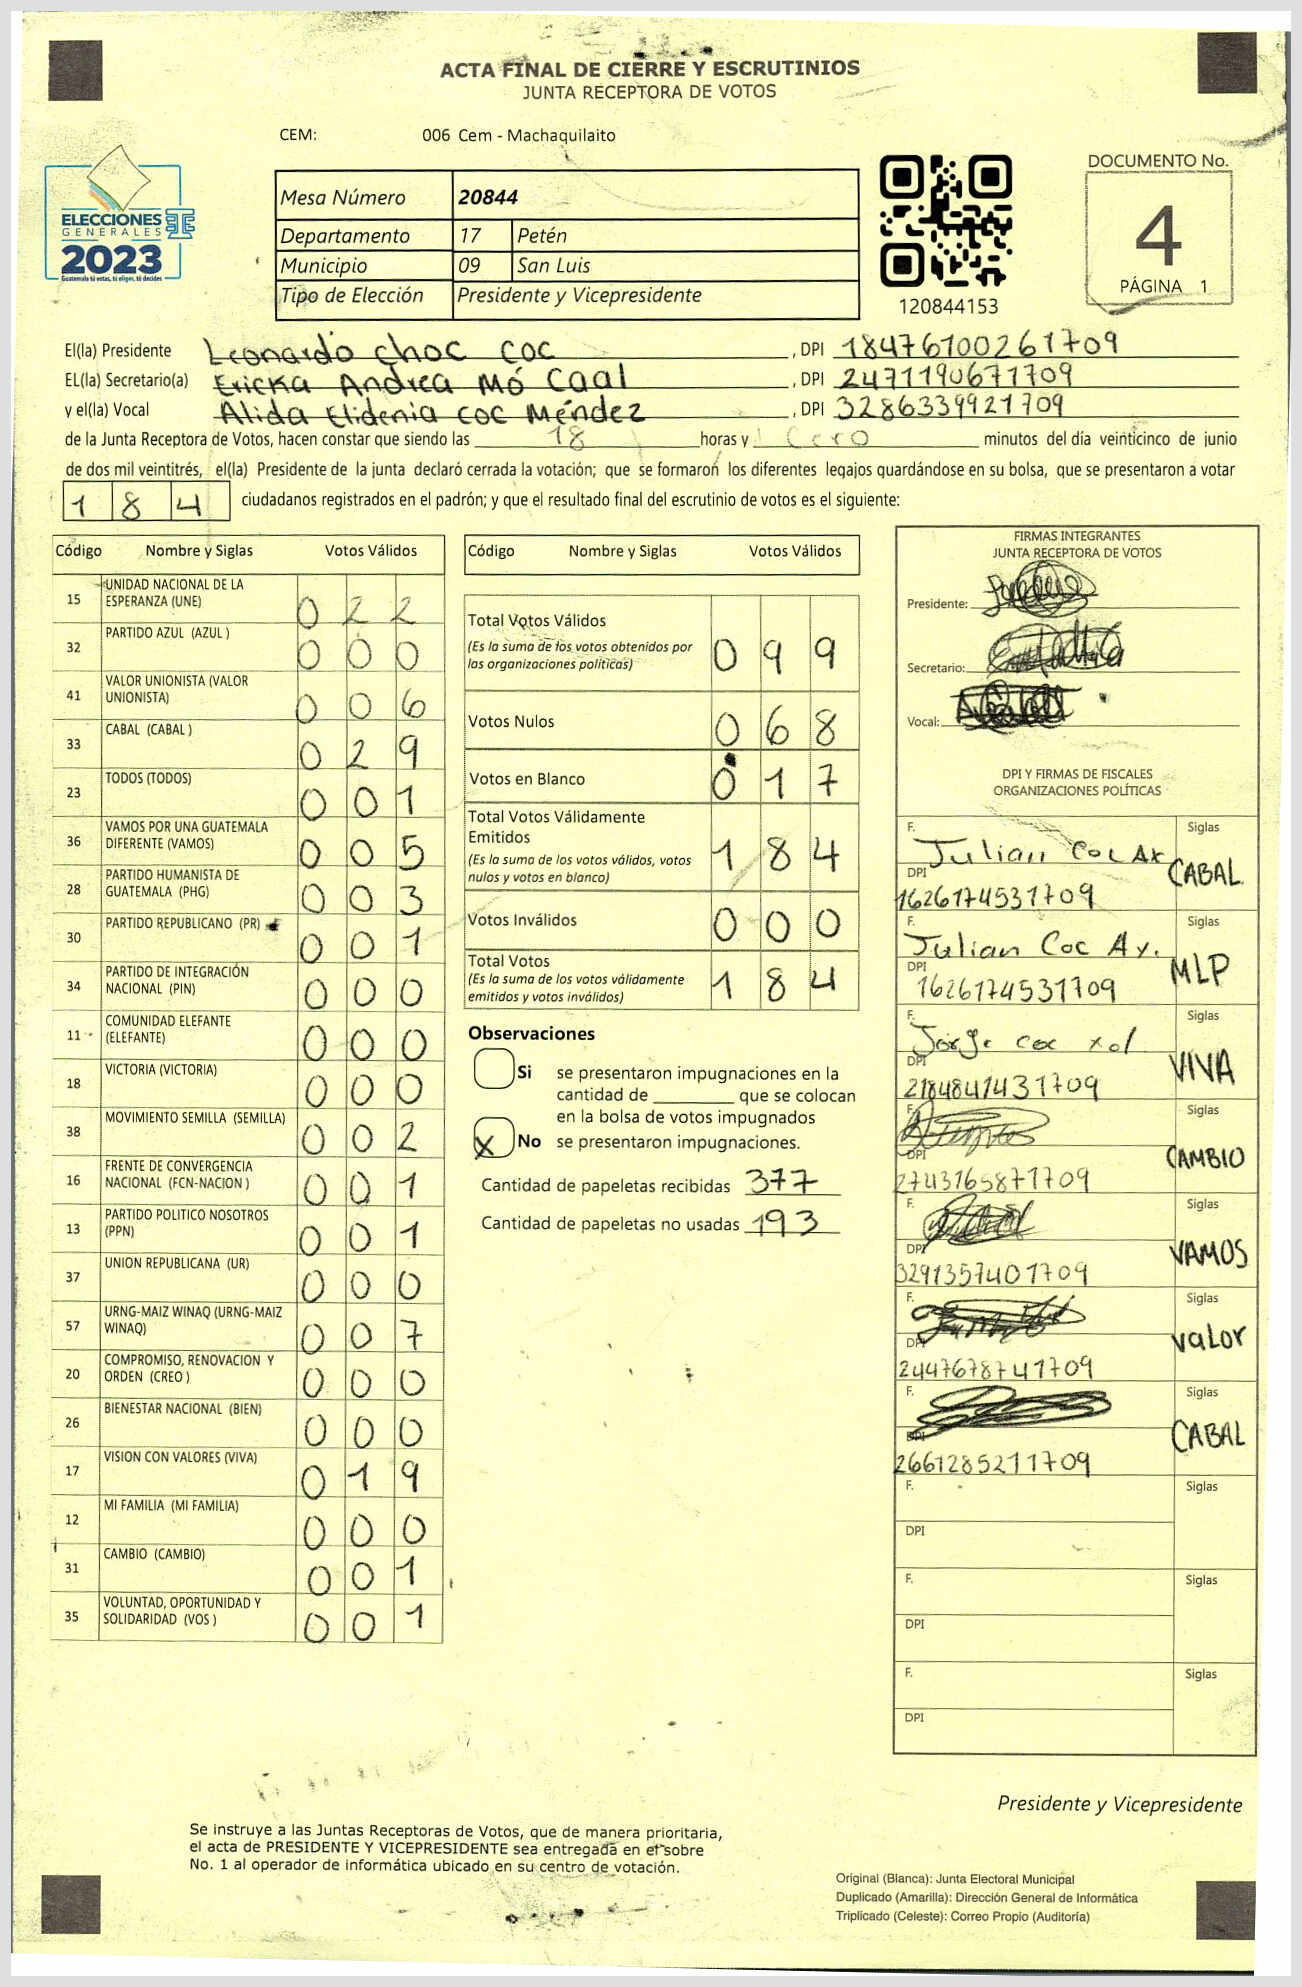 ACTA FINAL DE CIERRE Y ESCRUTINIOS
JUNTA RECEPTORA DE VOTOS
CEM: 006 Cem - Machaquilaito
ELECCIONES
GENERALES
2023
Guatemala tú votas, tú eliges, tú decides
Mesa Número 20844
Departamento 17 Petén
Municipio 09 San Luis
Tipo de Elección Presidente y Vicepresidente
120844153
DOCUMENTO No.
4
PÁGINA 1
El(la) Presidente Leonardo choc coc , DPI 1847610026 1709
EL(la) Secretario(a) Ericka Andrea Mó Caal , DPI 2471190671709
y el(la) Vocal Alida Elidenia coc Méndez , DPI 3286339921709
de la Junta Receptora de Votos, hacen constar que siendo las 18 horas y Cero minutos del día veinticinco de junio
de dos mil veintitrés, el(la) Presidente de la junta declaró cerrada la votación; que se formaron los diferentes legajos quardándose en su bolsa, que se presentaron a votar
184 ciudadanos registrados en el padrón; y que el resultado final del escrutinio de votos es el siguiente:
Código Nombre y Siglas Votos Válidos
15 UNIDAD NACIONAL DE LA
ESPERANZA (UNE) 0 2 2
32 PARTIDO AZUL (AZUL ) 0 0 0
41 VALOR UNIONISTA (VALOR
UNIONISTA) 0 0 6
33 CABAL (CABAL ) 0 2 9
23 TODOS (TODOS) 0 0 1
36 VAMOS POR UNA GUATEMALA
DIFERENTE (VAMOS) 0 0 5
28 PARTIDO HUMANISTA DE
GUATEMALA (PHG) 0 0 3
30 PARTIDO REPUBLICANO (PR) 0 0 1
34 PARTIDO DE INTEGRACIÓN
NACIONAL (PIN) 0 0 0
11 COMUNIDAD ELEFANTE
(ELEFANTE) 0 0 0
18 VICTORIA (VICTORIA) 0 0 0
38 MOVIMIENTO SEMILLA (SEMILLA) 0 0 2
16 FRENTE DE CONVERGENCIA
NACIONAL (FCN-NACION ) 0 0 1
13 PARTIDO POLITICO NOSOTROS
(PPN) 0 0 1
37 UNION REPUBLICANA (UR) 0 0 0
57 URNG-MAIZ WINAQ (URNG-MAIZ
WINAQ) 0 0 7
20 COMPROMISO, RENOVACION Y
ORDEN (CREO ) 0 0 0
26 BIENESTAR NACIONAL (BIEN) 0 0 0
17 VISION CON VALORES (VIVA) 0 1 9
12 MI FAMILIA (MI FAMILIA) 0 0 0
31 CAMBIO (CAMBIO) 0 0 1
35 VOLUNTAD, OPORTUNIDAD Y
SOLIDARIDAD (VOS ) 0 0 1
Código Nombre y Siglas Votos Válidos
Total Votos Válidos
(Es la suma de los votos obtenidos por
las organizaciones políticas) 0 9 9
Votos Nulos 0 6 8
Votos en Blanco 0 1 7
Total Votos Válidamente
Emitidos
(Es la suma de los votos válidos, votos
nulos y votos en blanco) 1 8 4
Votos Inválidos 0 0 0
Total Votos
(Es la suma de los votos válidamente
emitidos y votos inválidos) 1 8 4
Observaciones
Si se presentaron impugnaciones en la
cantidad de ________ que se colocan
en la bolsa de votos impugnados
X No se presentaron impugnaciones.
Cantidad de papeletas recibidas 377
Cantidad de papeletas no usadas 193
FIRMAS INTEGRANTES
JUNTA RECEPTORA DE VOTOS
Presidente:
Secretario:
Vocal:
DPI Y FIRMAS DE FISCALES
ORGANIZACIONES POLÍTICAS
F. Julian Coc Ax Siglas
DPI 1626174531709 CABAL
F. Julian Coc Ay. Siglas
DPI 1626174531709 MLP
F. Jorge coc xol Siglas
DPI 2184841431709 VIVA
F. Siglas
DPI 2743165871709 CAMBIO
F. Siglas
DPI 3291357401709 VAMOS
F. Siglas
DPI 2447678741709 valor
F. Siglas
DPI 2661285211709 CABAL
F. Siglas
DPI
F. Siglas
DPI
F. Siglas
DPI
Presidente y Vicepresidente
Se instruye a las Juntas Receptoras de Votos, que de manera prioritaria,
el acta de PRESIDENTE Y VICEPRESIDENTE sea entregada en el sobre
No. 1 al operador de informática ubicado en su centro de votación.
Original (Blanca): Junta Electoral Municipal
Duplicado (Amarilla): Dirección General de Informática
Triplicado (Celeste): Correo Propio (Auditoría)